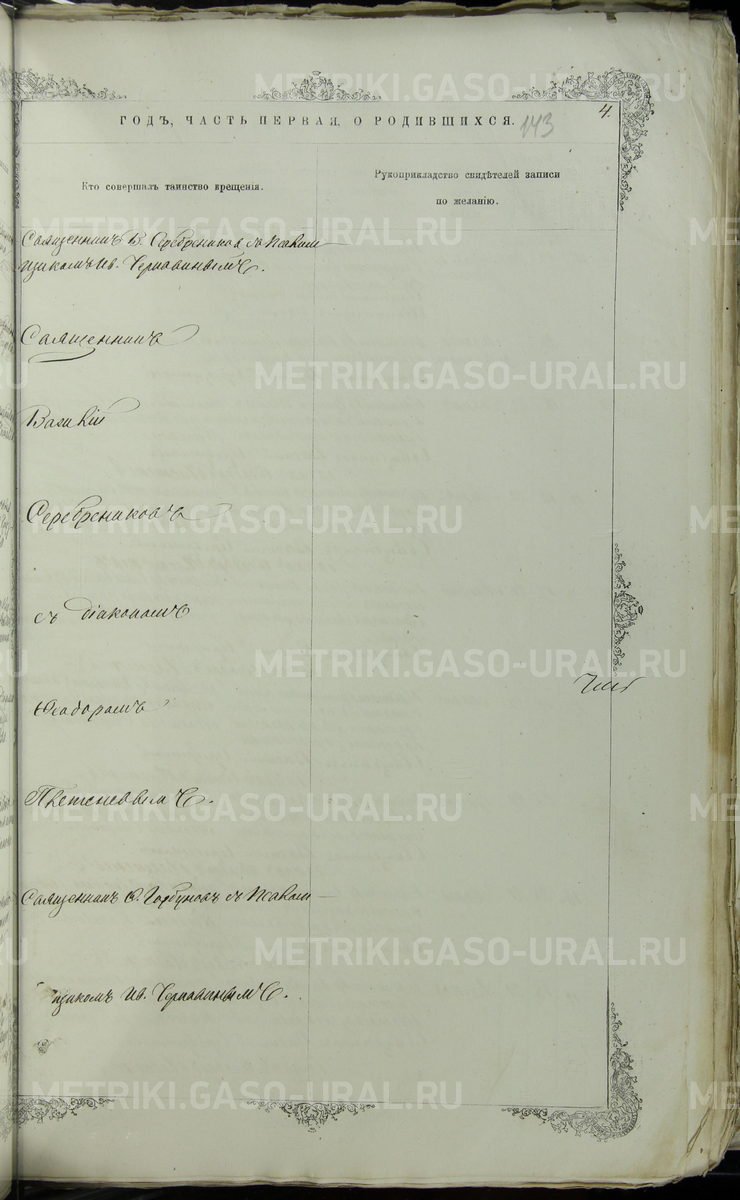 4.
ГОДЪ, ЧАСТЬ ПЕРВАЯ, О РОДИВШИХСЯ.
143
Кто совершалъ таинство крещенія.
Рукоприкладство свидѣтелей записи
по желанію.
Священникъ В. Серебрениковъ съ Псалом
щикомъ Ив. Чернавинымъ.
Священникъ
Василій
Серебрениковъ
съ діакономъ
Ѳеодоромъ
Священникъ Ѳ. Горбуновъ съ Псалом
щикомъ Ив. Чернавинымъ.
METRIKI.GASO-URAL.RU
METRIKI.GASO-URAL.RU
METRIKI.GASO-URAL.RU
METRIKI.GASO-URAL.RU
METRIKI.GASO-URAL.RU
METRIKI.GASO-URAL.RU
METRIKI.GASO-URAL.RU
METRIKI.GASO-URAL.RU